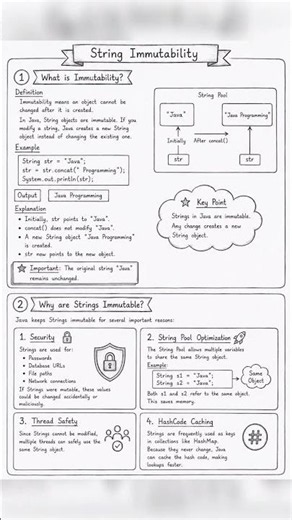 String Immutability
1 What is Immutability?
Definition
Immutability means an object cannot be
changed after it is created.
In Java, String objects are immutable. If you
modify a string, Java creates a new String
object instead of changing the existing one.
Example
String str = "Java";
str = str.concat(" Programming");
System.out.println(str);
Output
Java Programming
Explanation
• Initially, str points to "Java".
• concat() does not modify "Java".
• A new String object "Java Programming"
is created.
• str now points to the new object.
Important: The original string "Java"
remains unchanged.
String Pool
"Java"
"Java Programming"
Initially
After concat()
str
str
Key Point
Strings in Java are immutable.
Any change creates a new
String object.
2 Why are Strings Immutable?
Java keeps Strings immutable for several important reasons:
1. Security
Strings are used for:
• Passwords
• Database URLs
• File paths
• Network connections
If Strings were mutable, these values
could be changed accidentally or
maliciously.
2. String Pool Optimization
The String Pool allows multiple variables
to share the same String object.
Example:
String s1 = "Java";
String s2 = "Java";
Same
Object
Both s1 and s2 refer to the same object.
This saves memory.
3. Thread Safety
Since Strings cannot be modified,
multiple threads can safely use the
same String object.
4. HashCode Caching
Strings are frequently used as keys
in collections like HashMap.
Because they never change, Java
can cache the hash code, making
lookups faster.
#